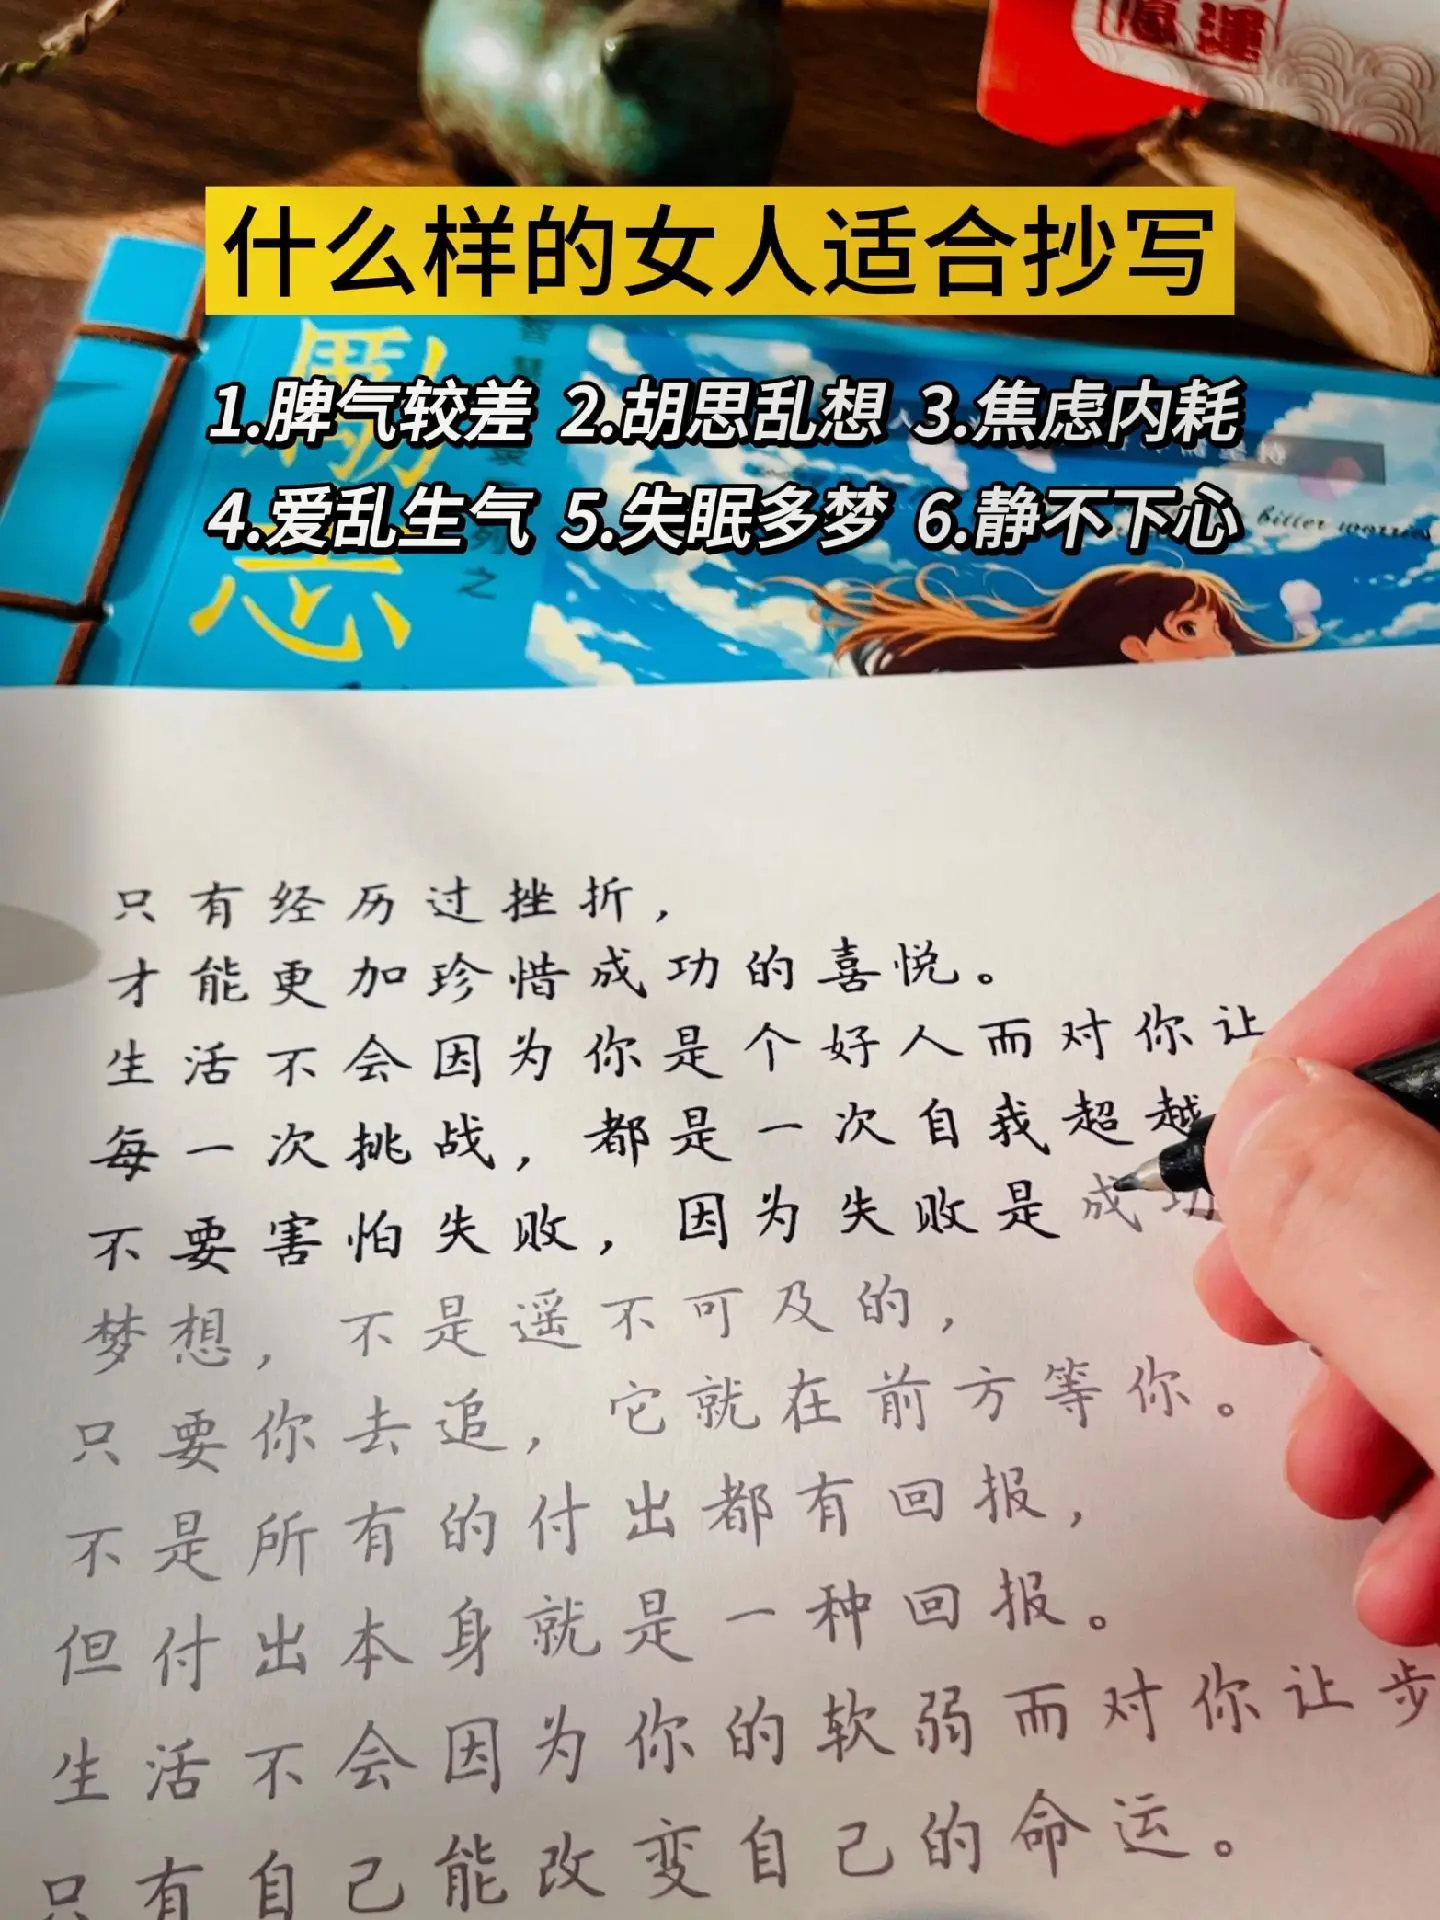 什么样的女人适合抄写
1.脾气较差 2.胡思乱想 3.焦虑内耗
4.爱乱生气 5.失眠多梦 6.静不下心
励志
列之
bitter worries
只有经历过挫折，
才能更加珍惜成功的喜悦。
生活不会因为你是个好人而对你让
每一次挑战，都是一次自我超越
不要害怕失败，因为失败是成功
梦想，不是遥不可及的，
只要你去追，它就在前方等你。
不是所有的付出都有回报，
但付出本身就是一种回报。
生活不会因为你的软弱而对你让步
只有自己能改变自己的命运。